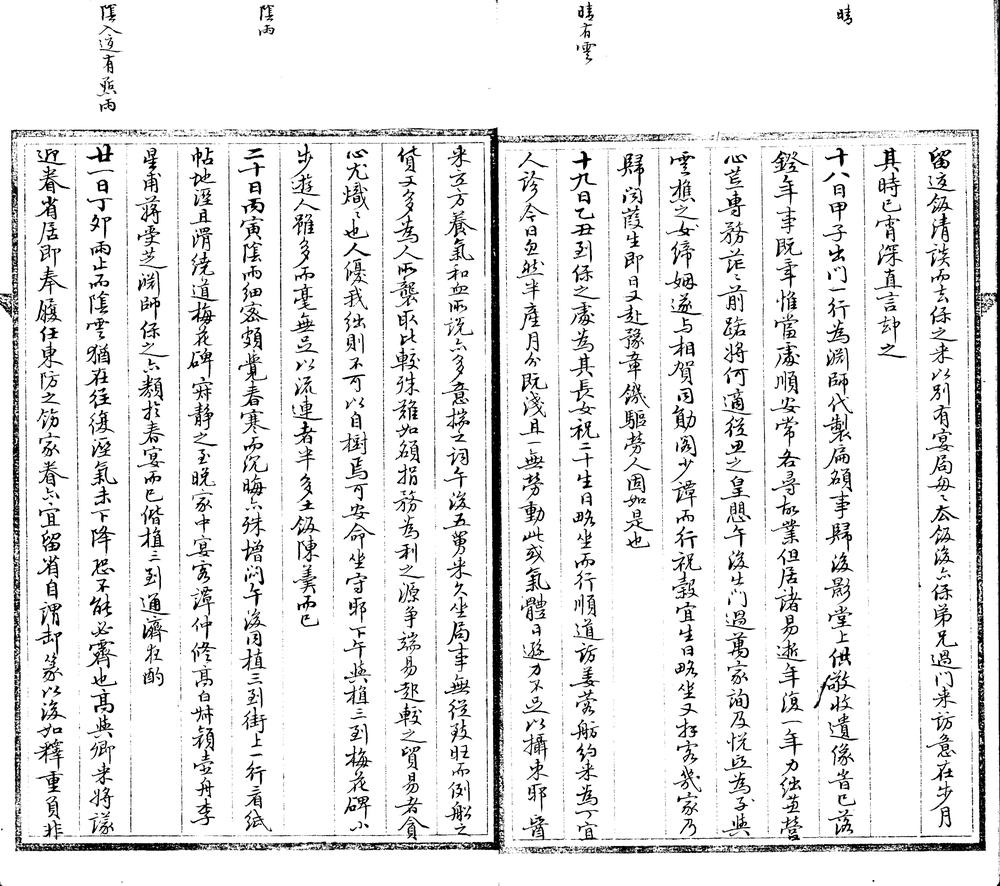 晴
晴有雲
陰雨
陰入這有點雨
留這飯清談而去保之來以別有宴局每々夜飯後六保弟兄過門來訪意在步月
其時已宵深直言却之
十八日甲子出門一行為淵師代製扁額事歸後影堂上供敬收遺像昔已落
鐙年事既畢惟當處順安常各尋故業但居諸易逝年復一年力絀蓋營
心芒專務茫々前路將何適從思之皇悤午後出門過萬家詢及悅臣為子與
雲樵之女締姻遂與相賀同勛閣少譚而行祝穀宜生日略坐又拜客幾家乃
歸閱葭生即日又赴豫章饑驅勞人固如是也
十九日乙丑到保之處為其長女祝二十生日略坐而行順道訪姜蓉舫約來為丁宜
人診今日忽然半產月分既淺且一無勞動此或氣體日遜力不足以攝束耶 晉
來立方養氣和血所說六多意揣之詞午後五舅來久坐局事無從致旺而例船之
貨又多為人所襲取比較殊難如碩捐務為利之源爭端易起較之貿易者貪
心尤熾々也人優我絀則不可以自樹焉可安命坐守耶下午與植三到梅花碑小
步遊人雖多而毫無足以流連者半多土飯陳羹而已
二十日丙寅陰雨細密頗覺春寒而沉晦六殊增悶午後同植三到街上一行看紙
帖地溼且滑繞道梅花碑寂靜之至晚家中宴客譚仲修高白叔穎壺舟李
星甫蔣雯芝淵師保之六類於春宴而已偕植三到通濟
廿一日丁卯雨止而陰雲猶在往復溼氣未下降恐不能必霽也高與卿來將議
近眷省居即奉履任東防之飭家眷六宜留省自謂却篆以後如釋重負非